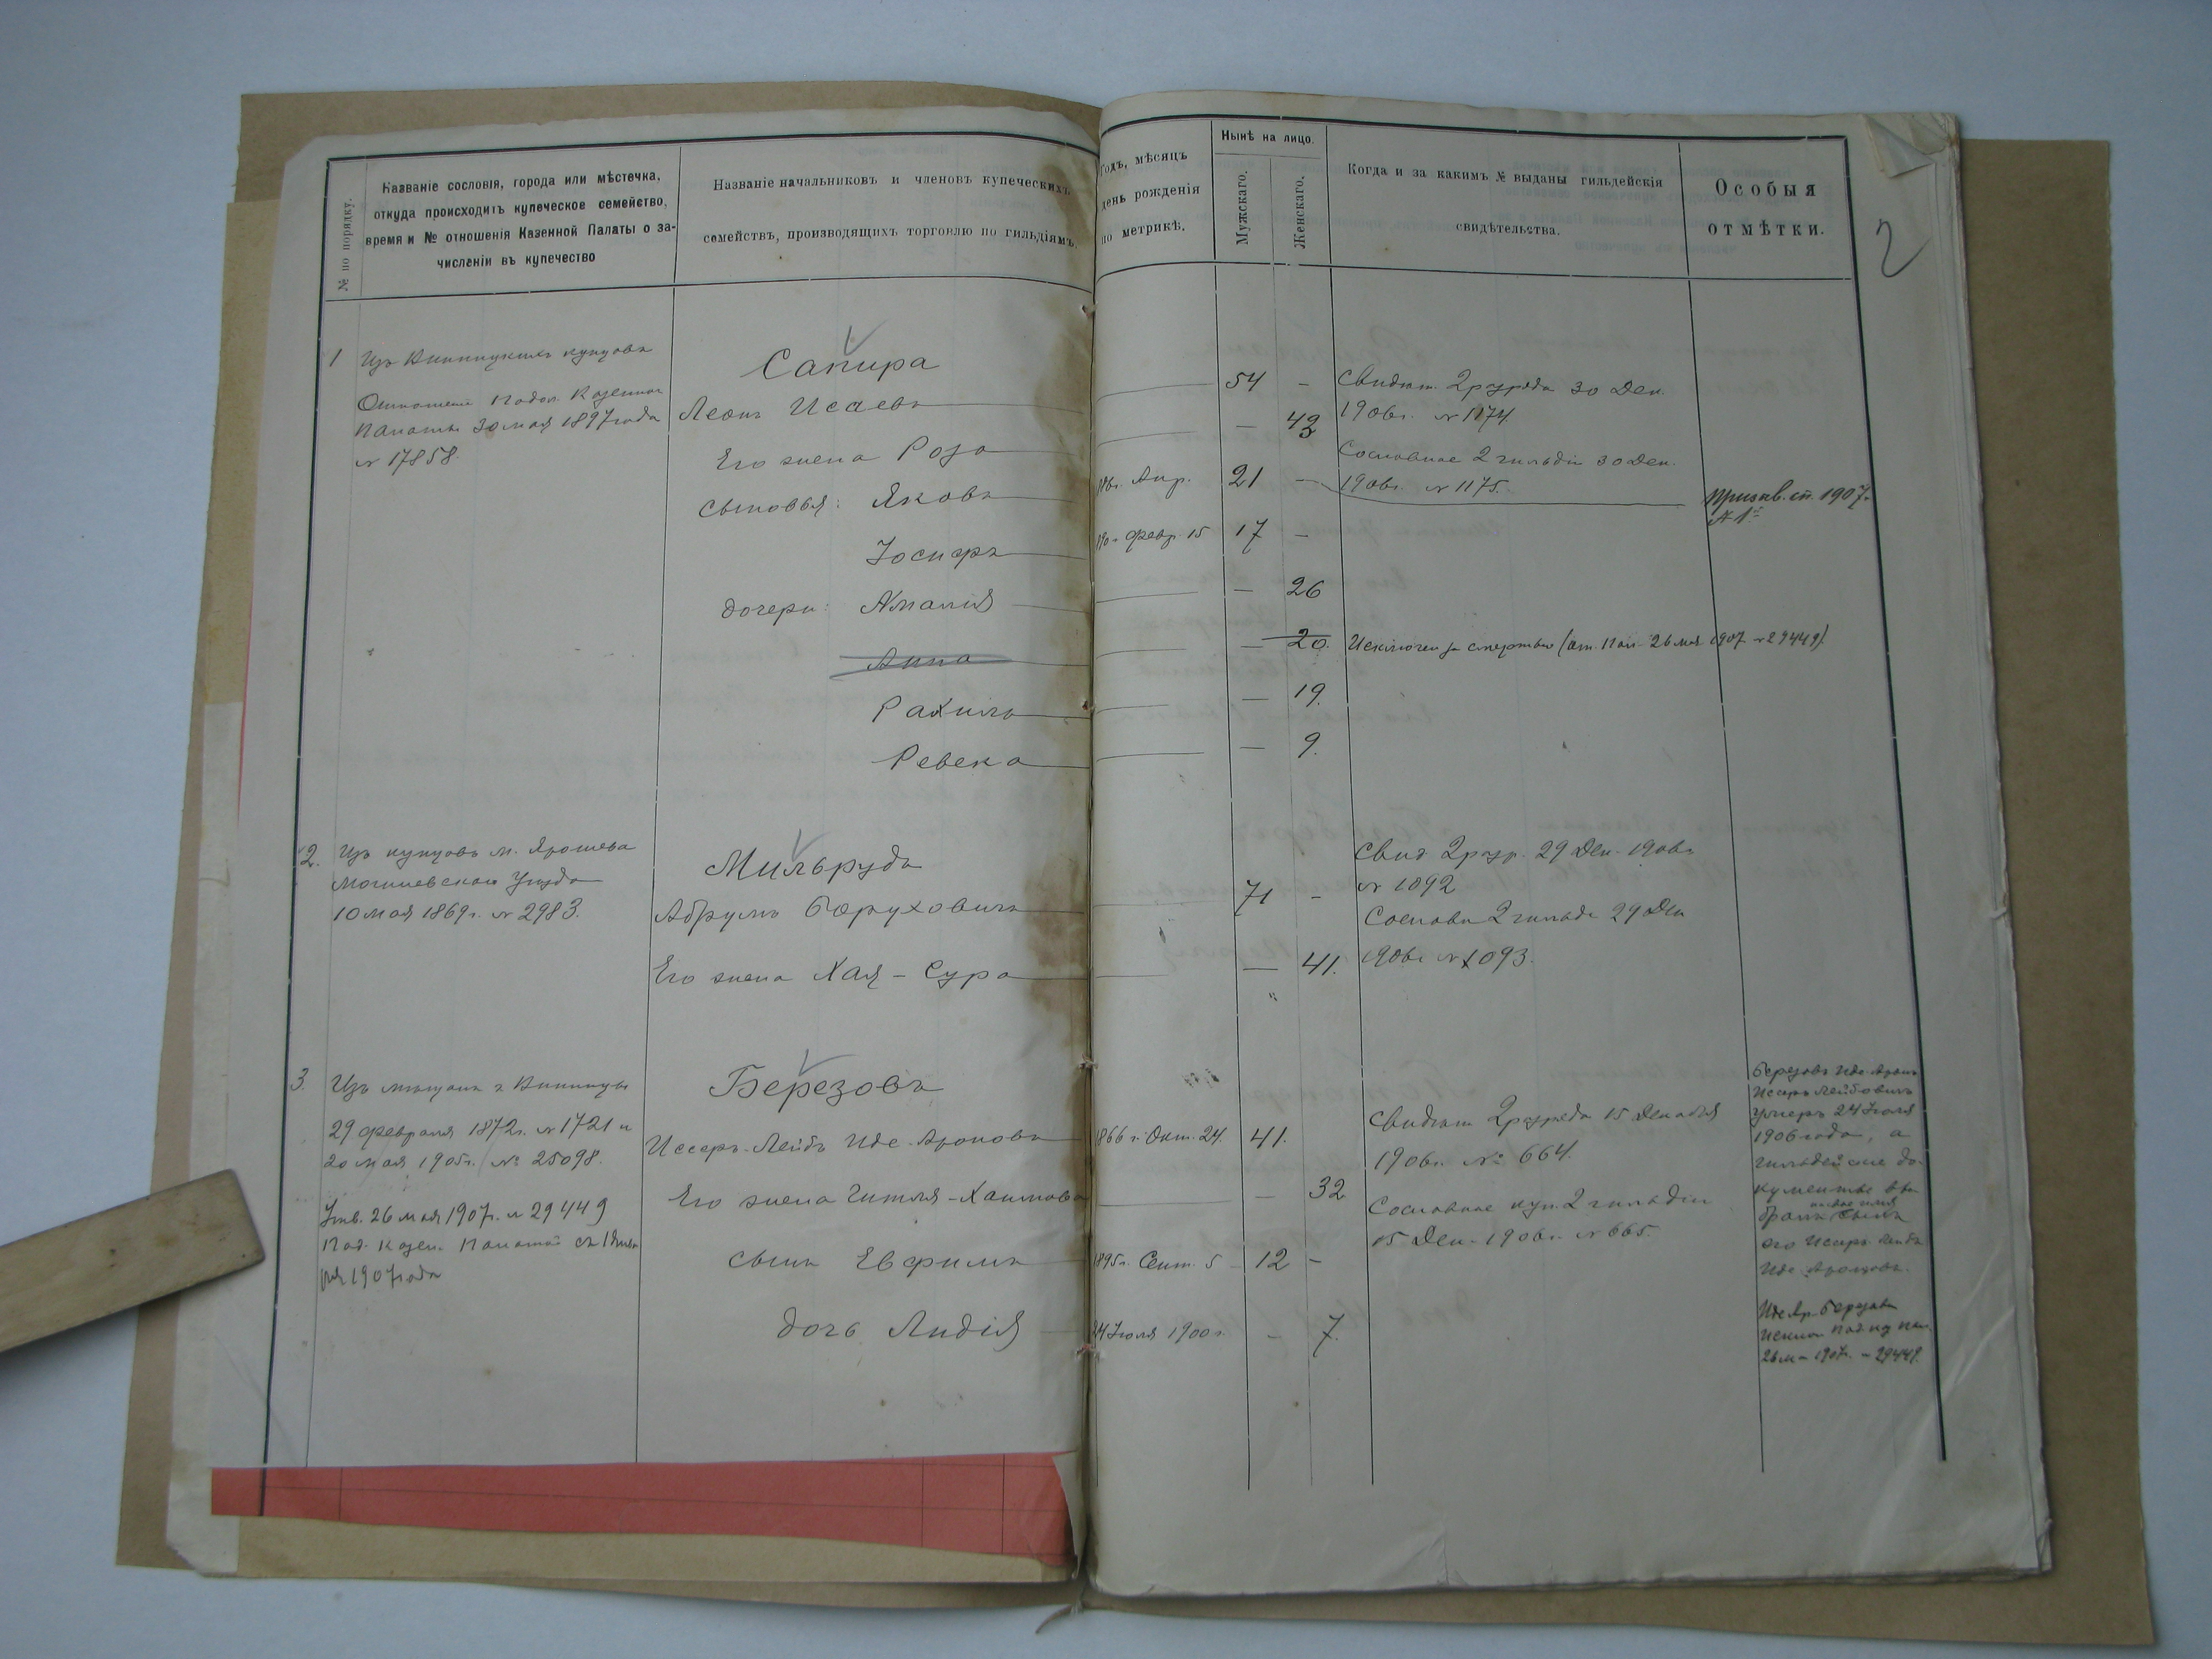 № по порядку.
Названіе сословія, города или мѣстечка,
откуда происходитъ купеческое семейство,
время и № отношенія Казенной Палаты о за-
численіи въ купечество
Названіе начальниковъ и членовъ купеческихъ
семействъ, производящихъ торговлю по гильдіямъ.
Годъ, мѣсяцъ
день рожденія
по метрикѣ.
Нынѣ на лицо.
Мужскаго.
Женскаго.
Когда и за какимъ № выданы гильдейскія
свидѣтельства.
Особыя
отмѣтки.
2
1 Изъ Винницкихъ купцовъ
Отношеніе Подол. Казенной
Палаты 30 мая 1897 года
№ 17858.
Сапира
Леонъ Исаевъ
54 -
Его жена Роза
- 43
Сыновья: Яковъ
Апр. 21 -
Іосифъ
Февр. 15 17 -
дочери: Амалія
- 26
Анна
- 20.
Рахиль
- 19.
Ревека
- 9.
Свидѣт. 2 разряда 30 Дек.
1906 г. № 1174.
Сословное 2 гильдіи 30 Дек.
1906 г. № 1175.
Призыв. сп. 1907 г.
№ 1
Исключен за смертью (от. Пал. 26 мая 1907 № 29449).
2. Изъ купцовъ м. Ярошева
Могилевскаго Уѣзда
10 мая 1869 г. № 2983.
Мильрудъ
Абрумъ Боруховичъ
71 -
Его жена Хая-Сура
- 41.
Свид 2 разр. 29 Дек. 1906 г.
№ 1092
Сословн 2 гильд 29 Дек
1906 г № 1093.
3. Изъ мѣщанъ г Винницы
29 февраля 1872 г. № 1721 и
20 мая 1905 г. № 25098.
Утв. 26 мая 1907 г. № 29449
Под. Казен. Палатой съ 1 Янва
ря 1907 года
Березовъ
Иссеръ-Лейбъ Иде-Ароновъ
1866 г. Окт. 24. 41.
Его жена Гитля-Хаимова
- 32
сынъ Евфимъ
1895 г. Сент. 5 12 -
дочь Лидія
24 Іюля 1900 г. - 7.
Свидѣт 2 разряда 15 Декабря
1906 г. № 664.
Сословное куп. 2 гильдіи
15 Дек. 1906 г. № 665.
Березовъ Иде-Аронъ
Исеръ Лейбовичъ
умеръ 24 Іюля
1906 года, а
гильдейскіе до-
кументы вы
на свое имя
браны сынъ
его Исеръ Лейбъ
Иде Ароновъ.
Иде Ар. Березовъ
Исключ Под. Каз Пал.
26 м 1907 г. № 29449.